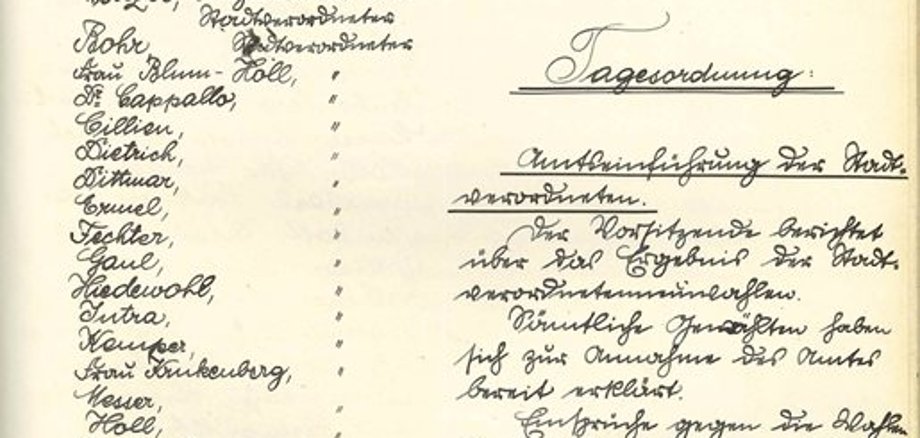 Stadtverordneter
Rohr, Stadtverordneter
Frau Blum-Höll, "
Dr. Cappallo, "
Cillien, "
Dietrich, "
Dittmar, "
Ermel, "
Fechter, "
Gaul, "
Hiedewohl, "
Jutra, "
Kemper, "
Frau Krukenberg, "
Messer, "
Höll, "
Tagesordnung:
Amtseinführung der Stadt-
verordneten.
Der Vorsitzende berichtet
über das Ergebnis der Stadt-
verordnetenneuwahlen.
Sämtliche Gewählten haben
sich zur Annahme des Amtes
bereit erklärt.
Einsprüche gegen die Wahlen